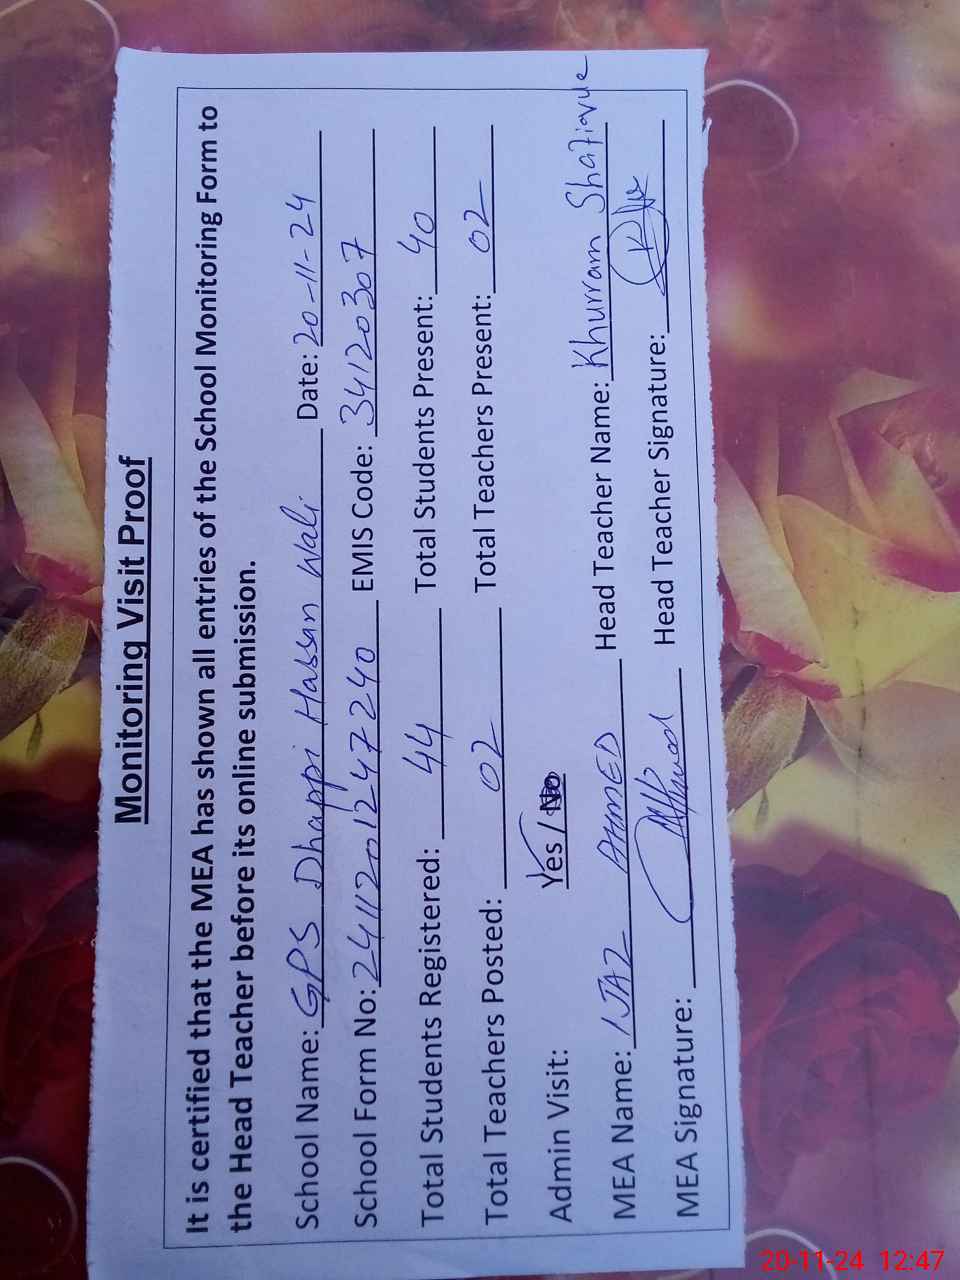 Monitoring Visit Proof
It is certified that the MEA has shown all entries of the School Monitoring Form to
the Head Teacher before its online submission.
School Name: GPS Dhappi Hassan Wali Date: 20-11-24
School Form No: 241120124 7240 EMIS Code: 34120307
Total Students Registered: 44 Total Students Present: 40
Total Teachers Posted: 02 Total Teachers Present: 02
Admin Visit: Yes / No
MEA Name: IJAZ AHMED Head Teacher Name: Khurram
MEA Signature: Head Teacher Signature:
20-11-24 12:47